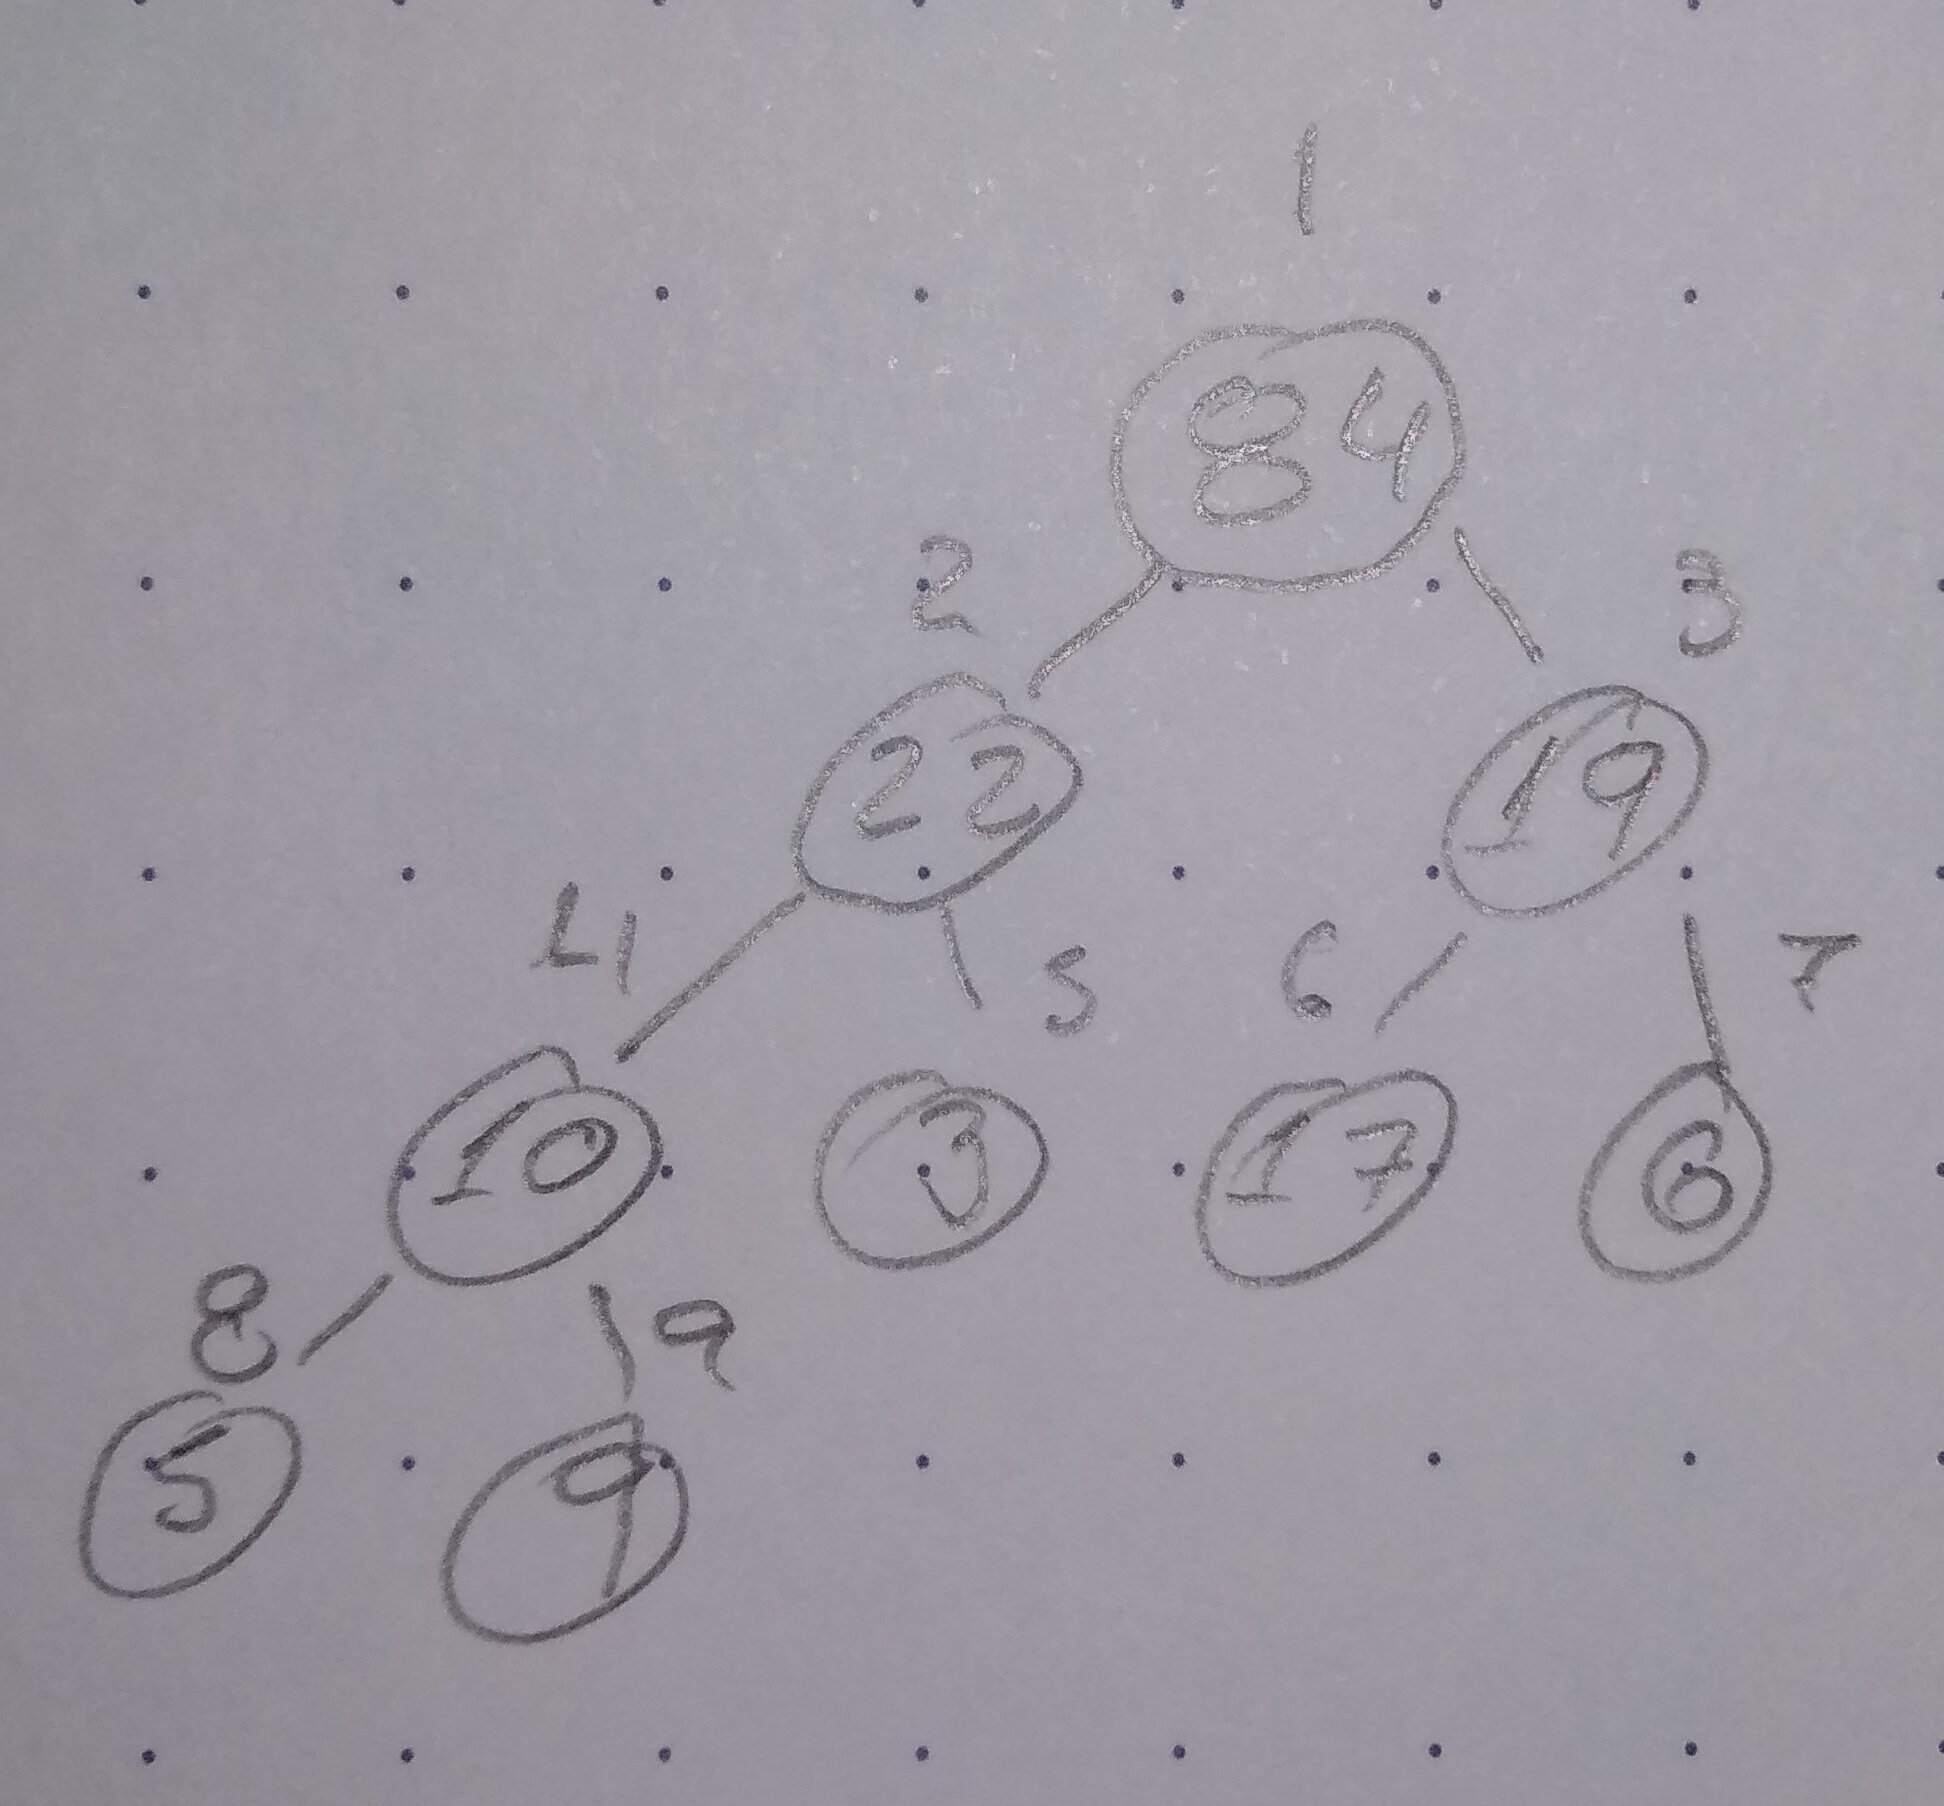 1
84
2 3
22 19
4 5 6 7
10 3 17 6
8 9
5 9